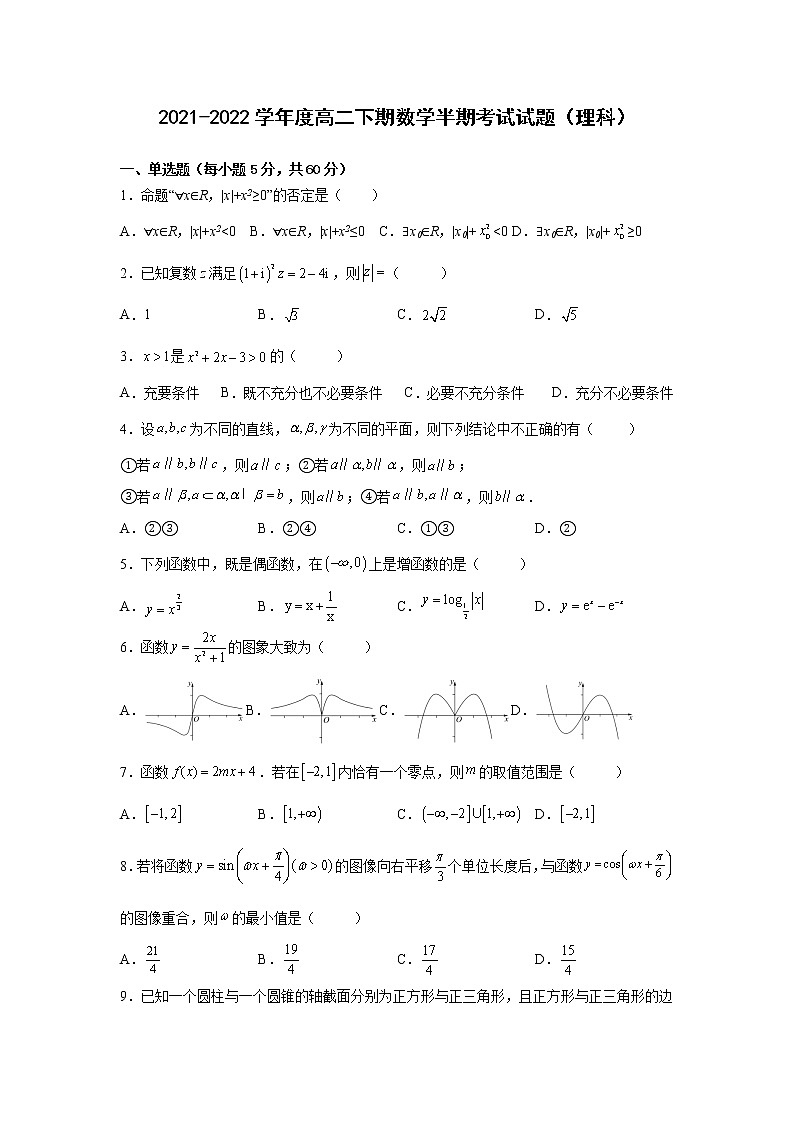 2021-2022 学年度高二下期数学半期考试试题（理科）
一、单选题（每小题 5 分，共 60 分）
1．命题“∀x∈R，|x|+x²≥0”的否定是（　　）
A．∀x∈R，|x|+x²<0 B．∀x∈R，|x|+x²≤0 C．∃x₀∈R，|x₀|+ x₀² <0 D．∃x₀∈R，|x₀|+ x₀² ≥0
2．已知复数 z 满足 (1+i)² z = 2−4i ，则 |z| =（　　）
A．1 B．√3 C．2√2 D．√5
3．x >1 是 x² + 2x − 3 > 0 的（　　）
A．充要条件 B．既不充分也不必要条件 C．必要不充分条件 D．充分不必要条件
4．设 a,b,c 为不同的直线，α,β,γ 为不同的平面，则下列结论中不正确的有（　　）
①若 a∥b,b∥c ，则 a∥c ；②若 a∥α,b∥α ，则 a∥b ；
③若 a∥β,a⊂α,α| β=b ，则 a∥b ；④若 a∥b,a∥α ，则 b∥α ．
A．②③ B．②④ C．①③ D．②
5．下列函数中，既是偶函数，在 (−∞,0) 上是增函数的是（　　）
A．y = x^(2/3) B．y = x + 1/x C．y = log_(1/2) |x| D．y = eˣ − e⁻ˣ
6．函数 y = 2x/(x²+1) 的图象大致为（　　）
A． y O x B． y O x C． y O x D． y O x
7．函数 f(x) = 2mx + 4 ．若在 [−2,1] 内恰有一个零点，则 m 的取值范围是（　　）
A．[−1,2] B．[1,+∞) C．(−∞,−2]∪[1,+∞) D．[−2,1]
8．若将函数 y = sin(ωx + π/4)(ω > 0) 的图像向右平移 π/3 个单位长度后，与函数 y = cos(ωx + π/6)
的图像重合，则 ω 的最小值是（　　）
A．21/4 B．19/4 C．17/4 D．15/4
9．已知一个圆柱与一个圆锥的轴截面分别为正方形与正三角形，且正方形与正三角形的边